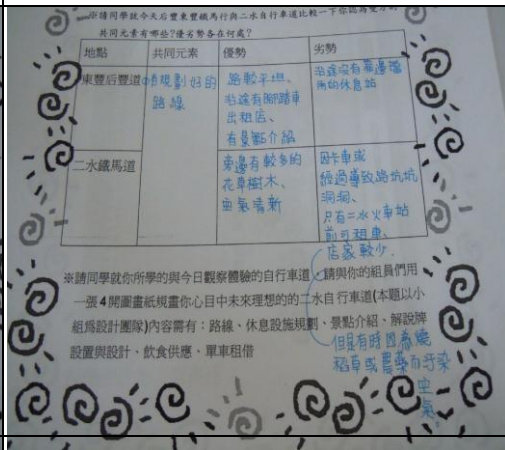 ※請同學就今天后豐東豐鐵馬行與二水自行車道比較一下你認為雙方的
共同元素有哪些?優劣勢各在何處?
地點
共同元素
優勢
劣勢
東豐后豐道
有規劃好的
路線
路較平坦、
沿途有腳踏車
出租店、
有景點介紹
沿途沒有
的休息站
二水鐵馬道
旁邊有較多的
花草樹木、
空氣清新
因卡車或
經過導致路坑坑
洞洞、
只有二水火車站
前可租車、
店家較少.
但是有時因為燒
稻草或農藥而汙染
空
氣.
※請同學就你所學的與今日觀察體驗的自行車道、請與你的組員們用
一張4開圖畫紙規畫你心目中未來理想的的二水自行車道(本題以小
組為設計團隊)內容需有：路線、休息設施規劃、景點介紹、解說牌
設置與設計、飲食供應、單車租借